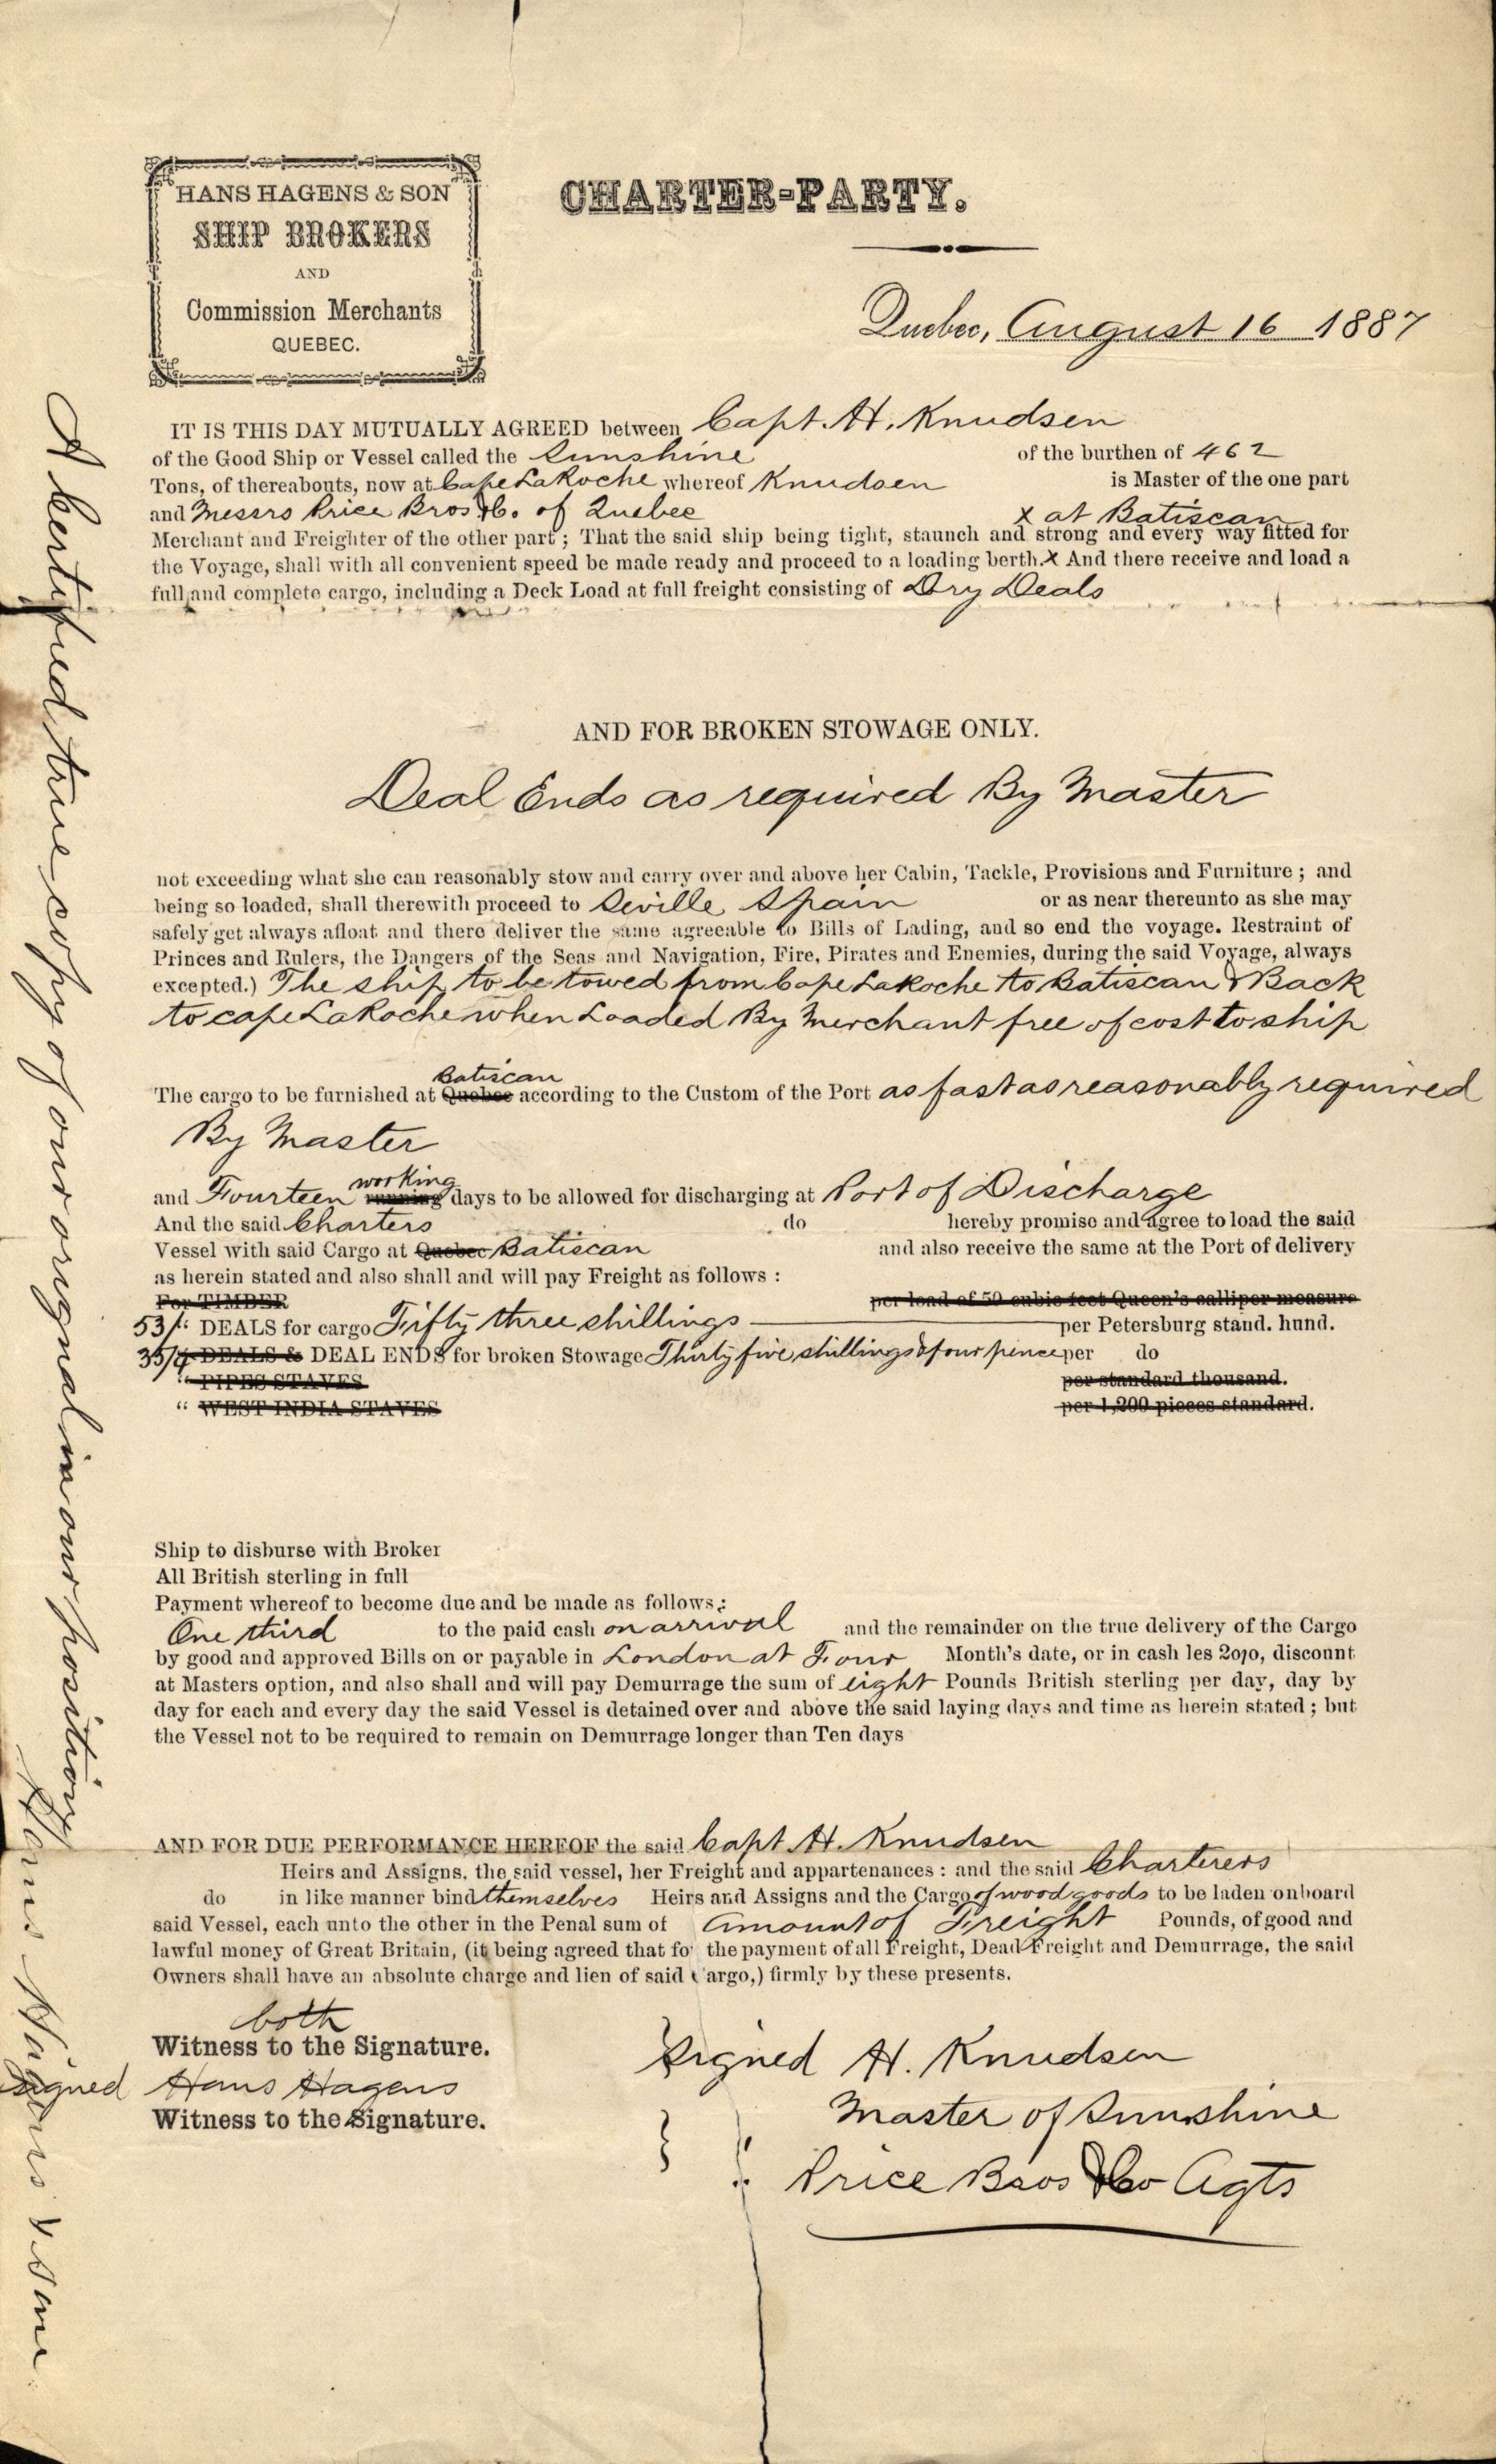 HANS HAGENS & SON
SHIP BROKERS
AND
Commission Merchants
QUEBEC.
CHARTER-PARTY.
Quebec, August 16 1887
IT IS THIS DAY MUTUALLY AGREED between Capt. H. Knudsen
of the Good Ship or Vessel called the Sunshine of the burthen of 462
Tons, of thereabouts, now at Cape LaRoche whereof Knudsen is Master of the one part
and Messrs Price Bros & Co. of Quebec x at Batiscan
Merchant and Freighter of the other part ; That the said ship being tight, staunch and strong and every way fitted for
the Voyage, shall with all convenient speed be made ready and proceed to a loading berth. x And there receive and load a
full and complete cargo, including a Deck Load at full freight consisting of Dry Deals
AND FOR BROKEN STOWAGE ONLY.
Deal Ends as required By Master
not exceeding what she can reasonably stow and carry over and above her Cabin, Tackle, Provisions and Furniture ; and
being so loaded, shall therewith proceed to Seville Spain or as near thereunto as she may
safely get always afloat and there deliver the same agreeable to Bills of Lading, and so end the voyage. Restraint of
Princes and Rulers, the Dangers of the Seas and Navigation, Fire, Pirates and Enemies, during the said Voyage, always
excepted.) The ship to be towed from Cape LaRoche to Batiscan & Back
to cape LaRoche when Loaded By Merchant free of cost to ship
Batiscan
The cargo to be furnished at Quebec according to the Custom of the Port as fast as reasonably required
By Master
working
and Fourteen running days to be allowed for discharging at Port of Discharge
And the said Charters do hereby promise and agree to load the said
Vessel with said Cargo at Quebec Batiscan and also receive the same at the Port of delivery
as herein stated and also shall and will pay Freight as follows :
For TIMBER per load of 50 cubic feet Queen's calliper measure
53/ " DEALS for cargo Fifty three shillings per Petersburg stand. hund.
35/4 DEALS & DEAL ENDS for broken Stowage Thirty five shillings & four pence per do
" PIPES STAVES per standard thousand.
" WEST INDIA STAVES per 1,200 pieces standard.
Ship to disburse with Broker
All British sterling in full
Payment whereof to become due and be made as follows :
One third to the paid cash on arrival and the remainder on the true delivery of the Cargo
by good and approved Bills on or payable in London at Four Month's date, or in cash les 2o/o, discount
at Masters option, and also shall and will pay Demurrage the sum of eight Pounds British sterling per day, day by
day for each and every day the said Vessel is detained over and above the said laying days and time as herein stated ; but
the Vessel not to be required to remain on Demurrage longer than Ten days
AND FOR DUE PERFORMANCE HEREOF the said Capt H. Knudsen
Heirs and Assigns, the said vessel, her Freight and appartenances : and the said Charterers
do in like manner bind themselves Heirs and Assigns and the Cargo of wood goods to be laden onboard
said Vessel, each unto the other in the Penal sum of Amount of Freight Pounds, of good and
lawful money of Great Britain, (it being agreed that fo the payment of all Freight, Dead Freight and Demurrage, the said
Owners shall have an absolute charge and lien of said Cargo,) firmly by these presents.
both
Witness to the Signature.
signed Hans Hagens
Witness to the Signature.
Signed H. Knudsen
Master of Sunshine
Price Bros & Co Agts
A certified true copy of our original in our position
Hans Hagens & Son